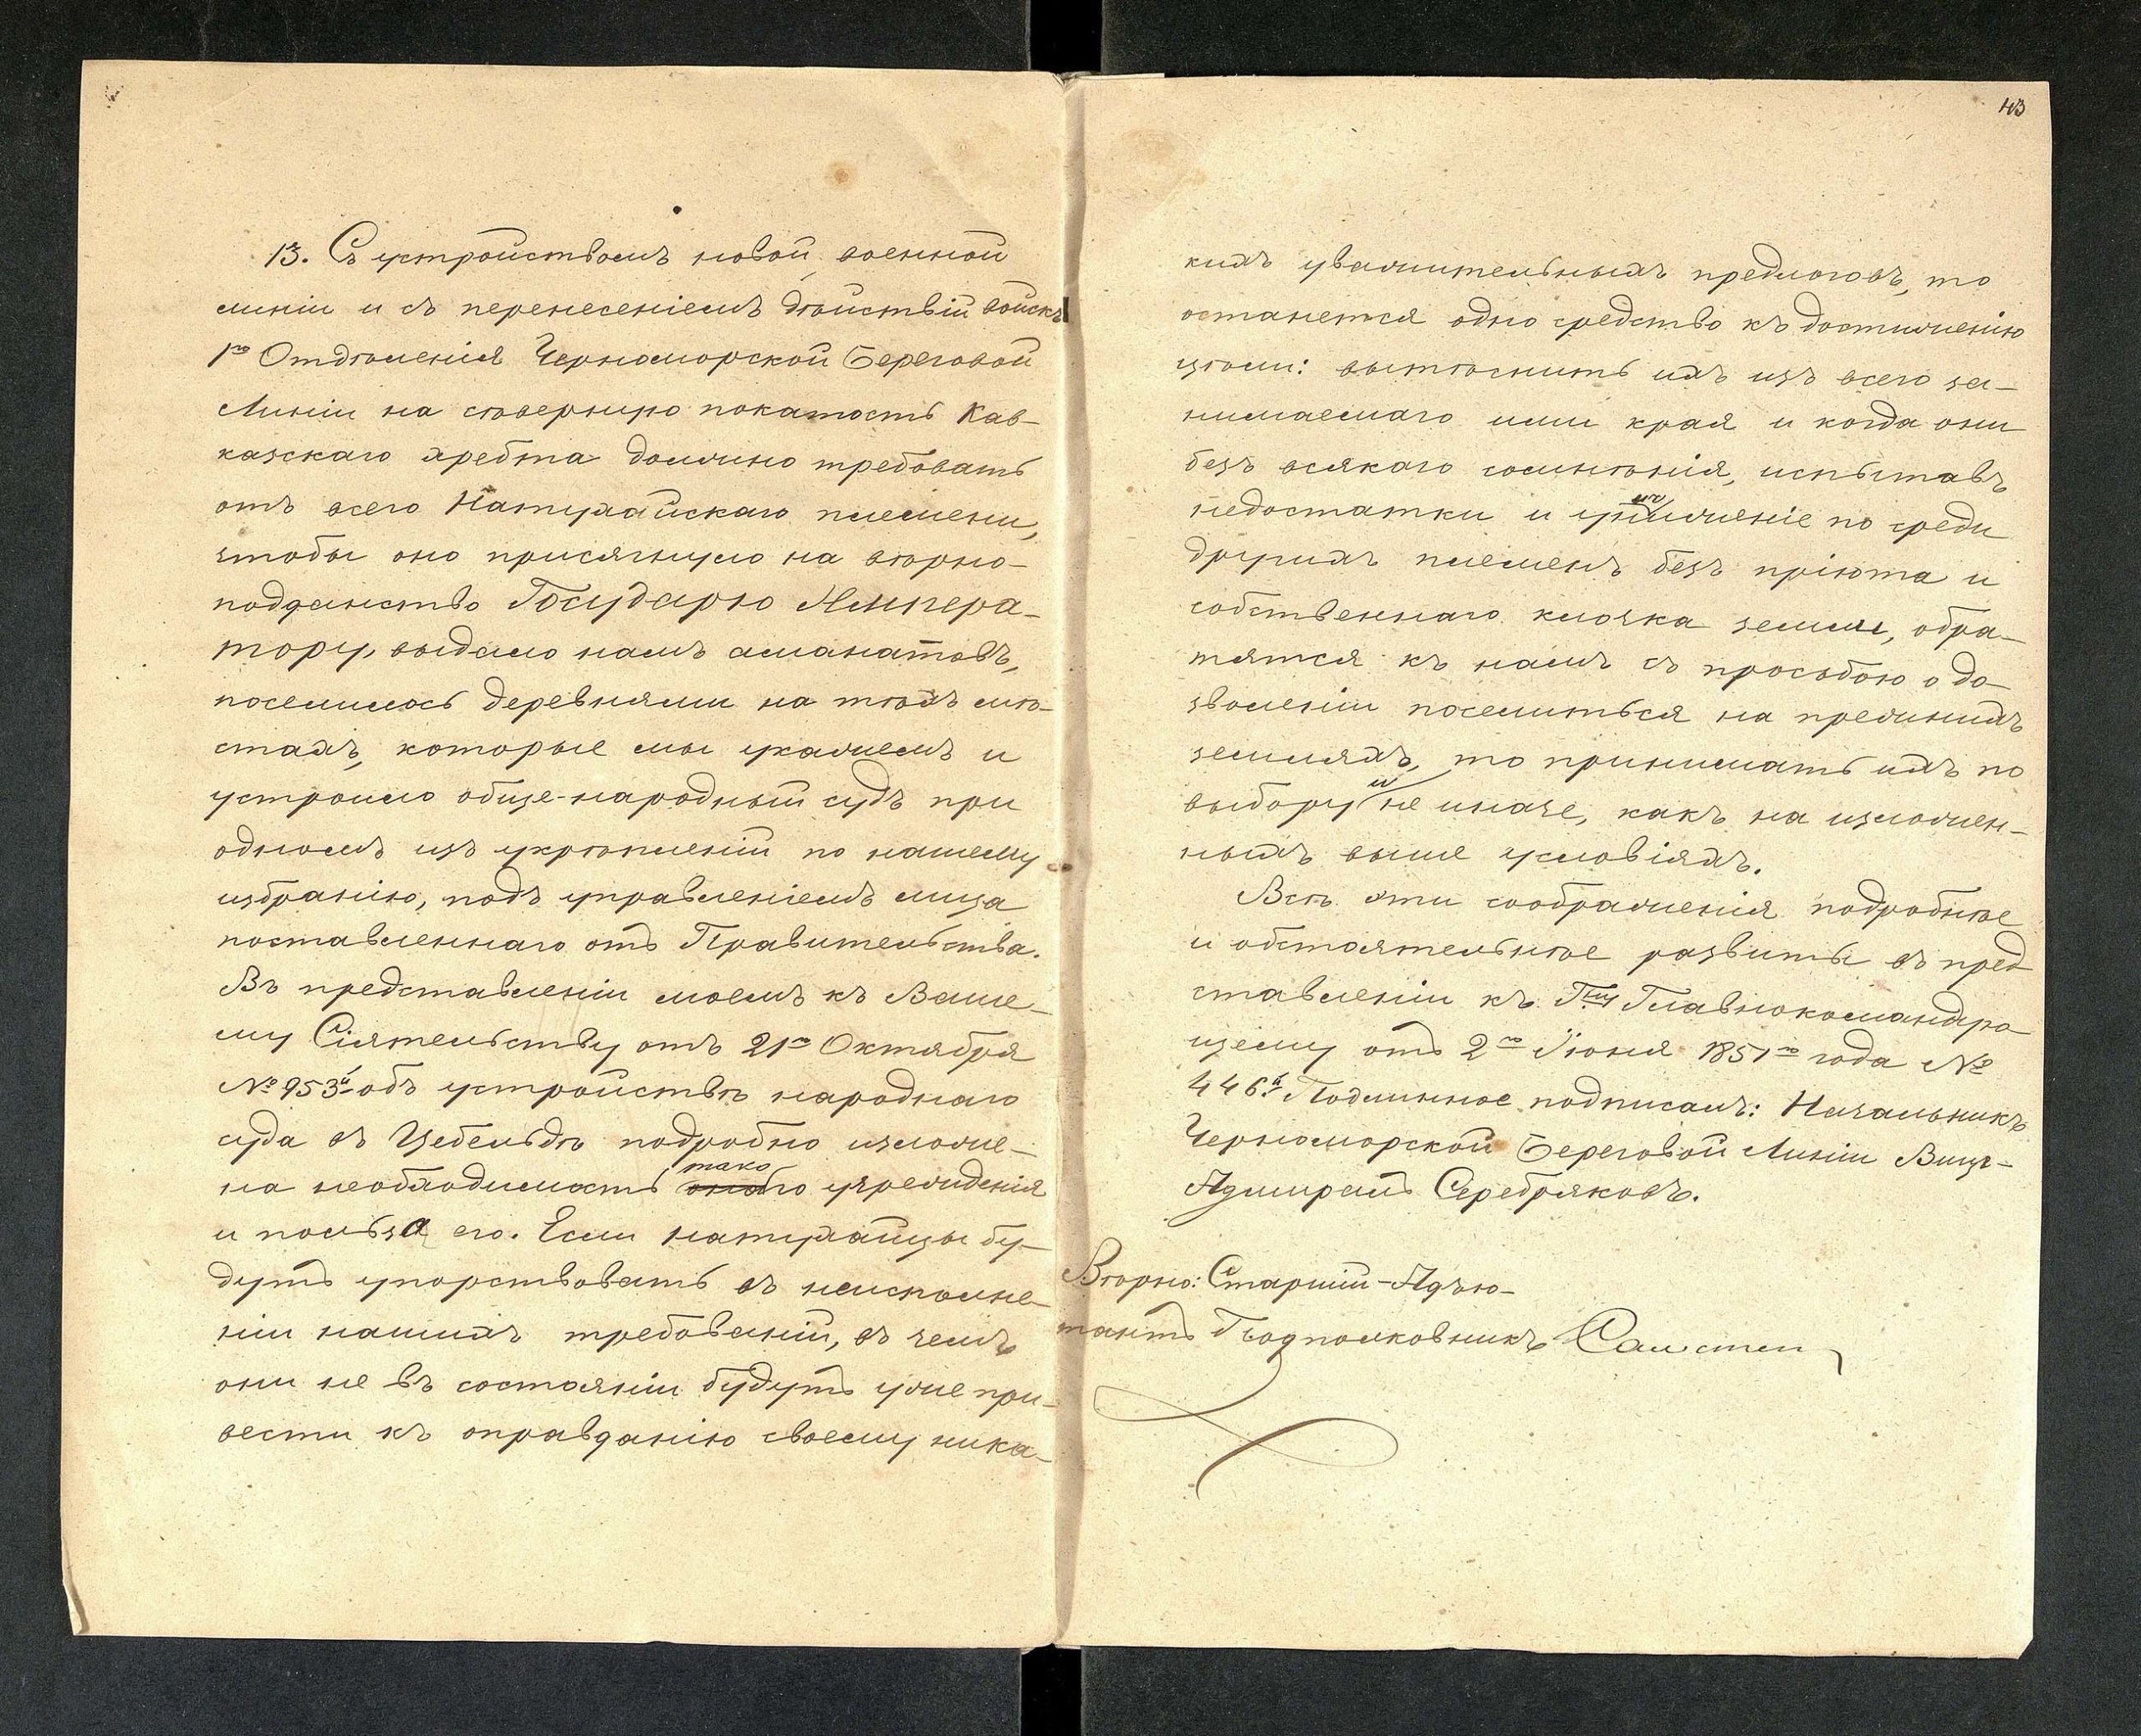 13. Съ устройствомъ новой военной
линіи и съ перенесеніемъ дѣйствій войскъ
1го Отдѣленія Черноморской Береговой
Линіи на сѣверную покатость Кав-
казскаго хребта должно требовать
отъ всего Натухайскаго племени,
чтобы оно присягнуло на вѣрно-
подданство Государю Импера-
тору, выдало намъ аманатовъ,
поселилось деревнями на тѣхъ мѣ-
стахъ, которые мы укажемъ и
устроило обще-народный судъ при
одномъ изъ укрѣпленій по нашему
избранію, подъ управленіемъ лица
поставленнаго отъ Правительства.
Въ представленіи моемъ къ Ваше-
му Сіятельству отъ 21го Октября
№ 953й объ устройствѣ народнаго
суда въ Цебельдѣ подробно изложе-
тако
на необходимость онаго учрежденія
и польза его. Если натухайцы бу-
дутъ упорствовать въ неисполне-
ніи нашихъ требованій, въ чемъ
они не въ состояніи будутъ уже при-
вести къ оправданію своему ника-
43
кихъ уважительныхъ предлоговъ, то
останется одно средство къ достиженію
цѣли: вытѣснить ихъ изъ всего за-
нимаемаго ими края и когда они
безъ всякаго сомнѣнія, испытавъ
недостатки и униженіе по среди
другихъ племенъ безъ пріюта и
собственнаго клочка земли, обра-
тятся къ намъ съ просьбою о до-
зволеніи поселиться на прежнихъ
земляхъ, то принимать ихъ по
выбору и не иначе, какъ на изложен-
ныхъ выше условіяхъ.
Всѣ эти соображенія подробнѣе
и обстоятельнѣе развиты въ пред
ставленіи къ Гну Главнокомандую
щему отъ 2го Іюня 1851го года №
446й. Подлинное подписалъ: Начальникъ
Черноморской Береговой Линіи Вице-
Адмиралъ Серебряковъ.
Вѣрно: Старшій-Адъю-
тантъ Подполковникъ